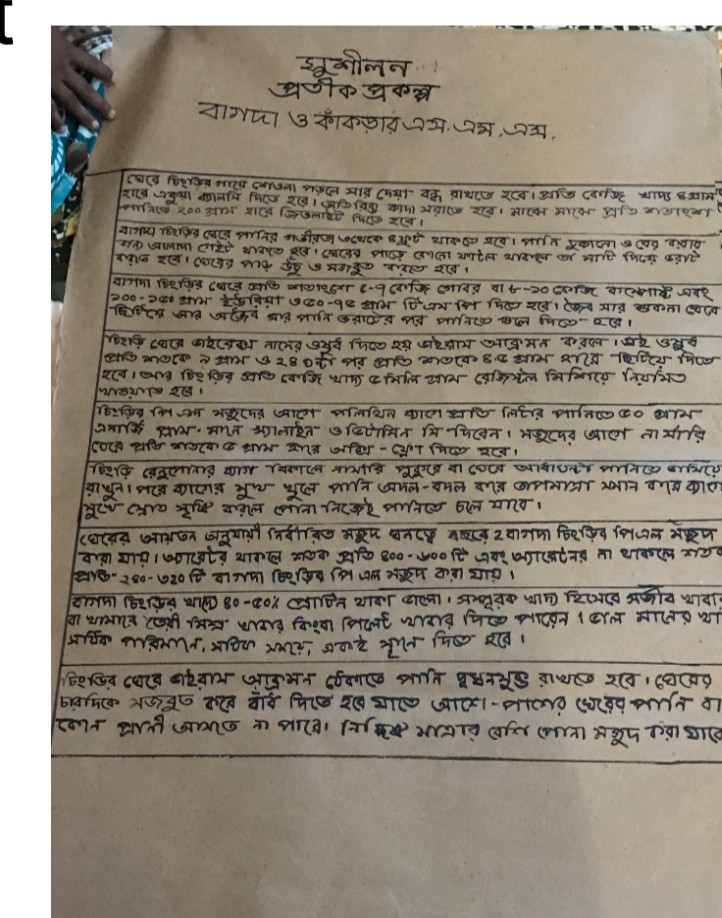 t
সুশীলন
প্রতীক প্রকল্প
বাগদা ও কাঁকড়ার এস.এম.এস.
ঘেরে চিংড়ির গায়ে শেওলা পড়লে সার দেয়া বন্ধ রাখতে হবে। প্রতি কেজি খাদ্যে ৪ গ্রাম
হারে একুয়া ক্যালসি দিতে হবে। অতিরিক্ত কাদা সরাতে হবে। মাঝে মাঝে প্রতি শতাংশে
পানিতে ২০০ গ্রাম হারে জিওলাইট দিতে হবে।
বাগদা চিংড়ির ঘেরে পানির গভীরতা ৩থেকে ৪ফুট থাকতে হবে। পানি ঢুকানো ও বের করার
জন্য আলাদা গেইট থাকতে হবে। ঘেরের পাড়ে কোনো ফাটল থাকলে তা মাটি দিয়ে ভরাট
করতে হবে। ঘেরের পাড় উঁচু ও মজবুত করতে হবে।
বাগদা চিংড়ির ঘেরে প্রতি শতাংশে ৫-৭ কেজি গোবর বা ৮-১০ কেজি কম্পোস্ট এবং
১০০-১৫০ গ্রাম ইউরিয়া ও ৫০-৭৫ গ্রাম টি এস পি দিতে হবে। জৈব সার শুকনা ঘেরে
ছিটিয়ে আর অজৈব সার পানি ভরাটের পর পানিতে গুলে দিতে হবে।
চিংড়ি ঘেরে ভাইরেক্স নামের ওষুধ দিতে হয় ভাইরাস আক্রমন করলে। এই ওষুধ
প্রতি শতকে ৯ গ্রাম ও ২৪ ঘন্টা পর প্রতি শতকে ৪৫ গ্রাম হারে ছিটিয়ে দিতে
হবে। আর চিংড়ির প্রতি কেজি খাদ্যে ৫ মিলি গ্রাম রেজিস্টল মিশিয়ে নিয়মিত
খাওয়াতে হবে।
চিংড়ির পি এল মজুদের আগে পলিথিন ব্যাগে প্রতি লিটার পানিতে ৫০ গ্রাম
এনার্জি প্লাস, মানে স্যালাইন ও ভিটামিন সি দিবেন। মজুদের আগে নার্সারি
ঘেরে প্রতি শতকে ৫ গ্রাম হারে অক্সি-ফ্লো দিতে হবে।
চিংড়ি রেনুপোনার ব্যাগ বিকালে নার্সারি পুকুরে বা ঘেরে আধাঘন্টা পানিতে ভাসিয়ে
রাখুন। পরে ব্যাগের মুখ খুলে পানি অদল-বদল করে তাপমাত্রা সমান করে ব্যাগে
মুখে স্রোত সৃষ্টি করলে পোনা নিজেই পানিতে চলে যাবে।
ঘেরের আয়তন অনুযায়ী নির্ধারিত মজুদ ঘনত্বে বছরে ২বাগদা চিংড়ির পিএল মজুদ
করা যায়। অ্যারেটর থাকলে শতক প্রতি ৪০০-৬০০ টি এবং অ্যারেটর না থাকলে শতক
প্রতি-২৪০-৩২০ টি বাগদা চিংড়ির পি এল মজুদ করা যায়।
বাগদা চিংড়ির খাদ্যে ৪০-৫০% প্রোটিন থাকা ভালো। সম্পূরক খাদ্য হিসেবে সজীব খাবার
বা খামারে তৈরী মিশ্র খাবার কিংবা পিলেট খাবার দিতে পারেন। ভাল মানের খা
সঠিক পরিমানে, সঠিক সময়ে, একই স্থানে দিতে হবে।
চিংড়ির ঘেরে ভাইরাস আক্রমন ঠেকাতে পানি দুষনমুক্ত রাখতে হবে। ঘেরের
চারদিকে মজবুত করে বাঁধ দিতে হবে যাতে আশে-পাশের ঘেরের পানি বা
কোন প্রানী আসতে না পারে। নির্দিষ্ট মাত্রার বেশি পোনা মজুদ করা যাবে